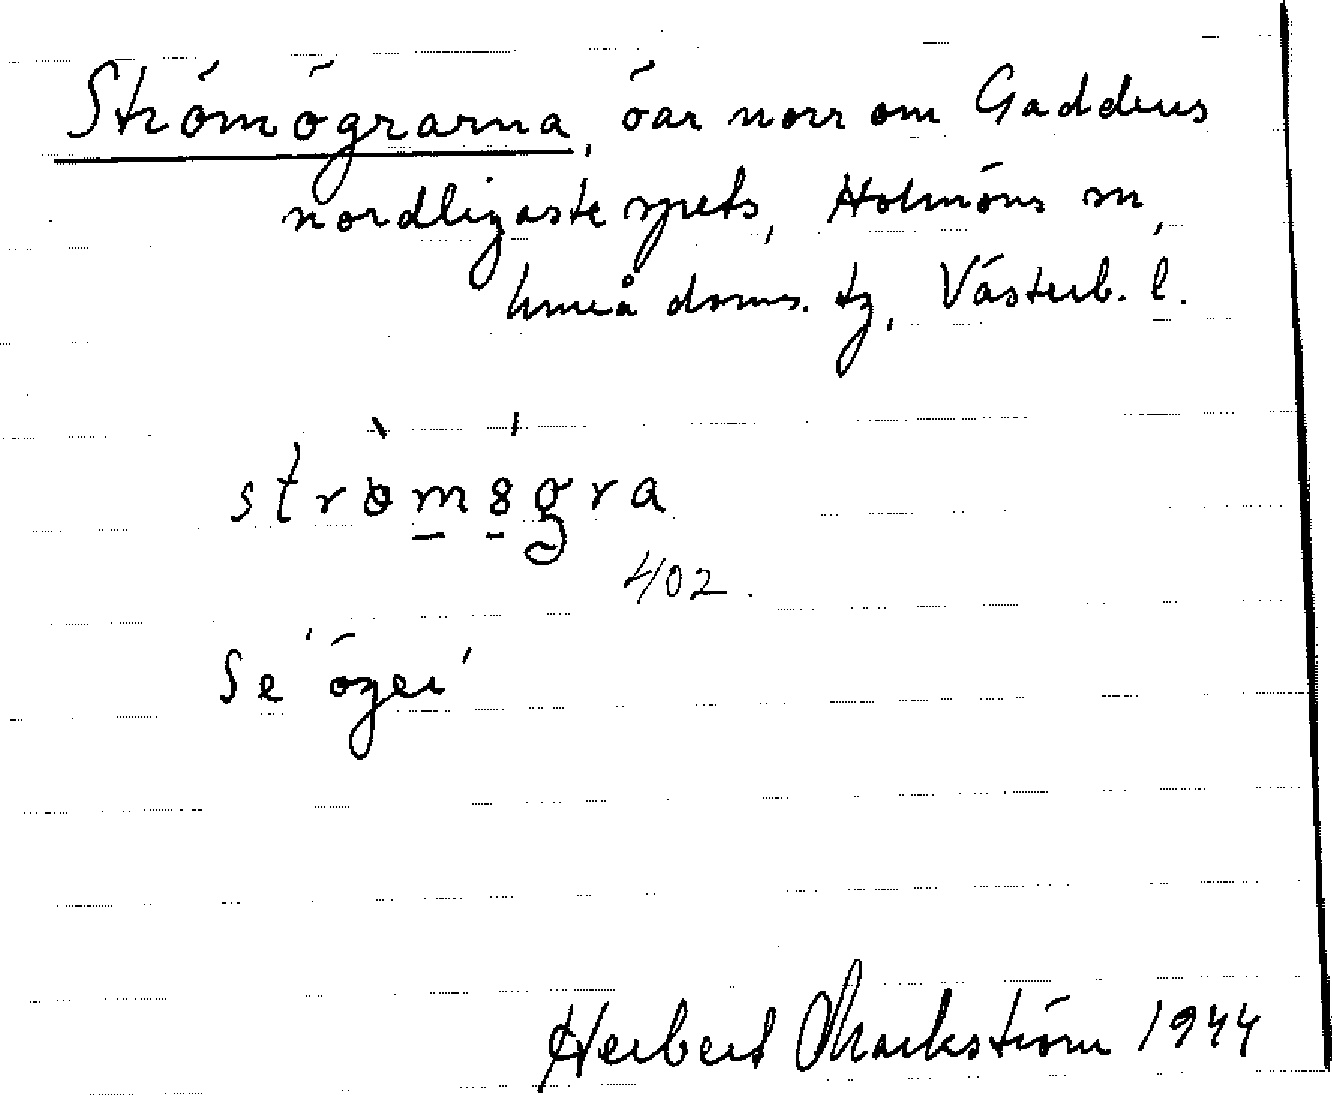 Strömögrarna, öar norr om Gaddens
nordligaste spets, Holmöns sn,
Umeå doms. tg, Västerb. l.
strömögra
402.
Se 'öger'
Herbert Markström 1944